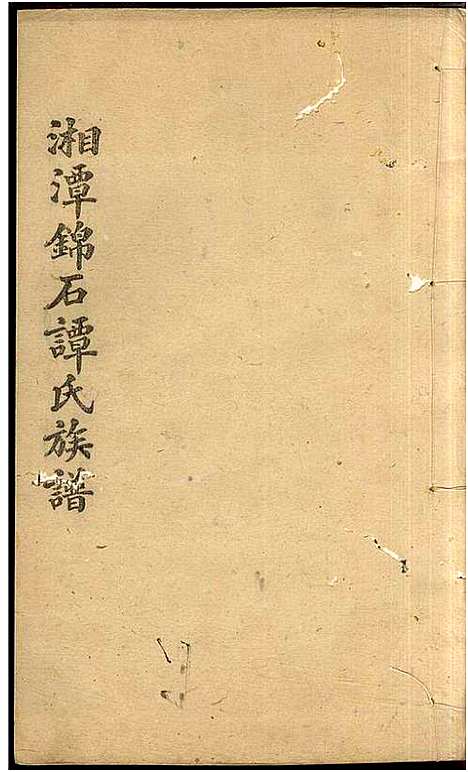 湘潭錦石譚氏族譜